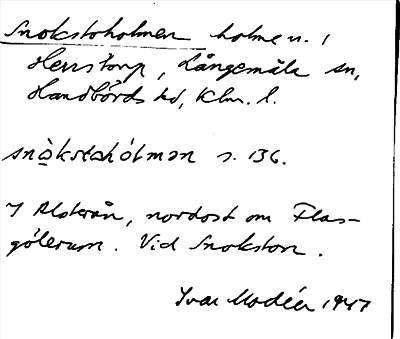 Snokstoholmen holme n. i
Herrstorp, Långemåla sn,
Handbörds hd, Klm. l.
snòkstahólmən s. 136.
I Alsterån, nordost om Flas-
gölerum. Vid Snokston.
Ivar Modéer 1947